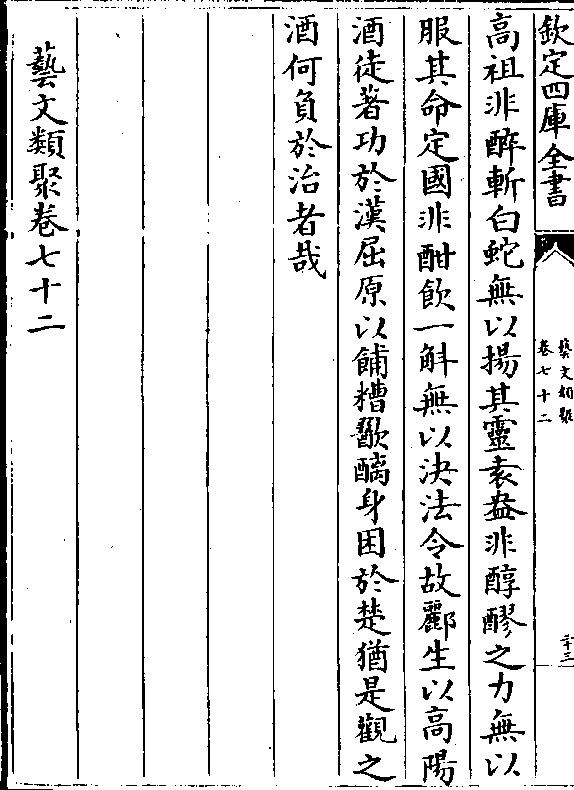 欽定四庫全書
藝文類聚
卷七十二
二十三
高祖非醉斬白蛇無以揚其靈袁盎非醇醪之力無以
服其命定國非酣飲一斛無以決法令故酈生以高陽
酒徒著功於漢屈原以餔糟歠醨身困於楚猶是觀之
酒何負於治者哉
藝文類聚卷七十二